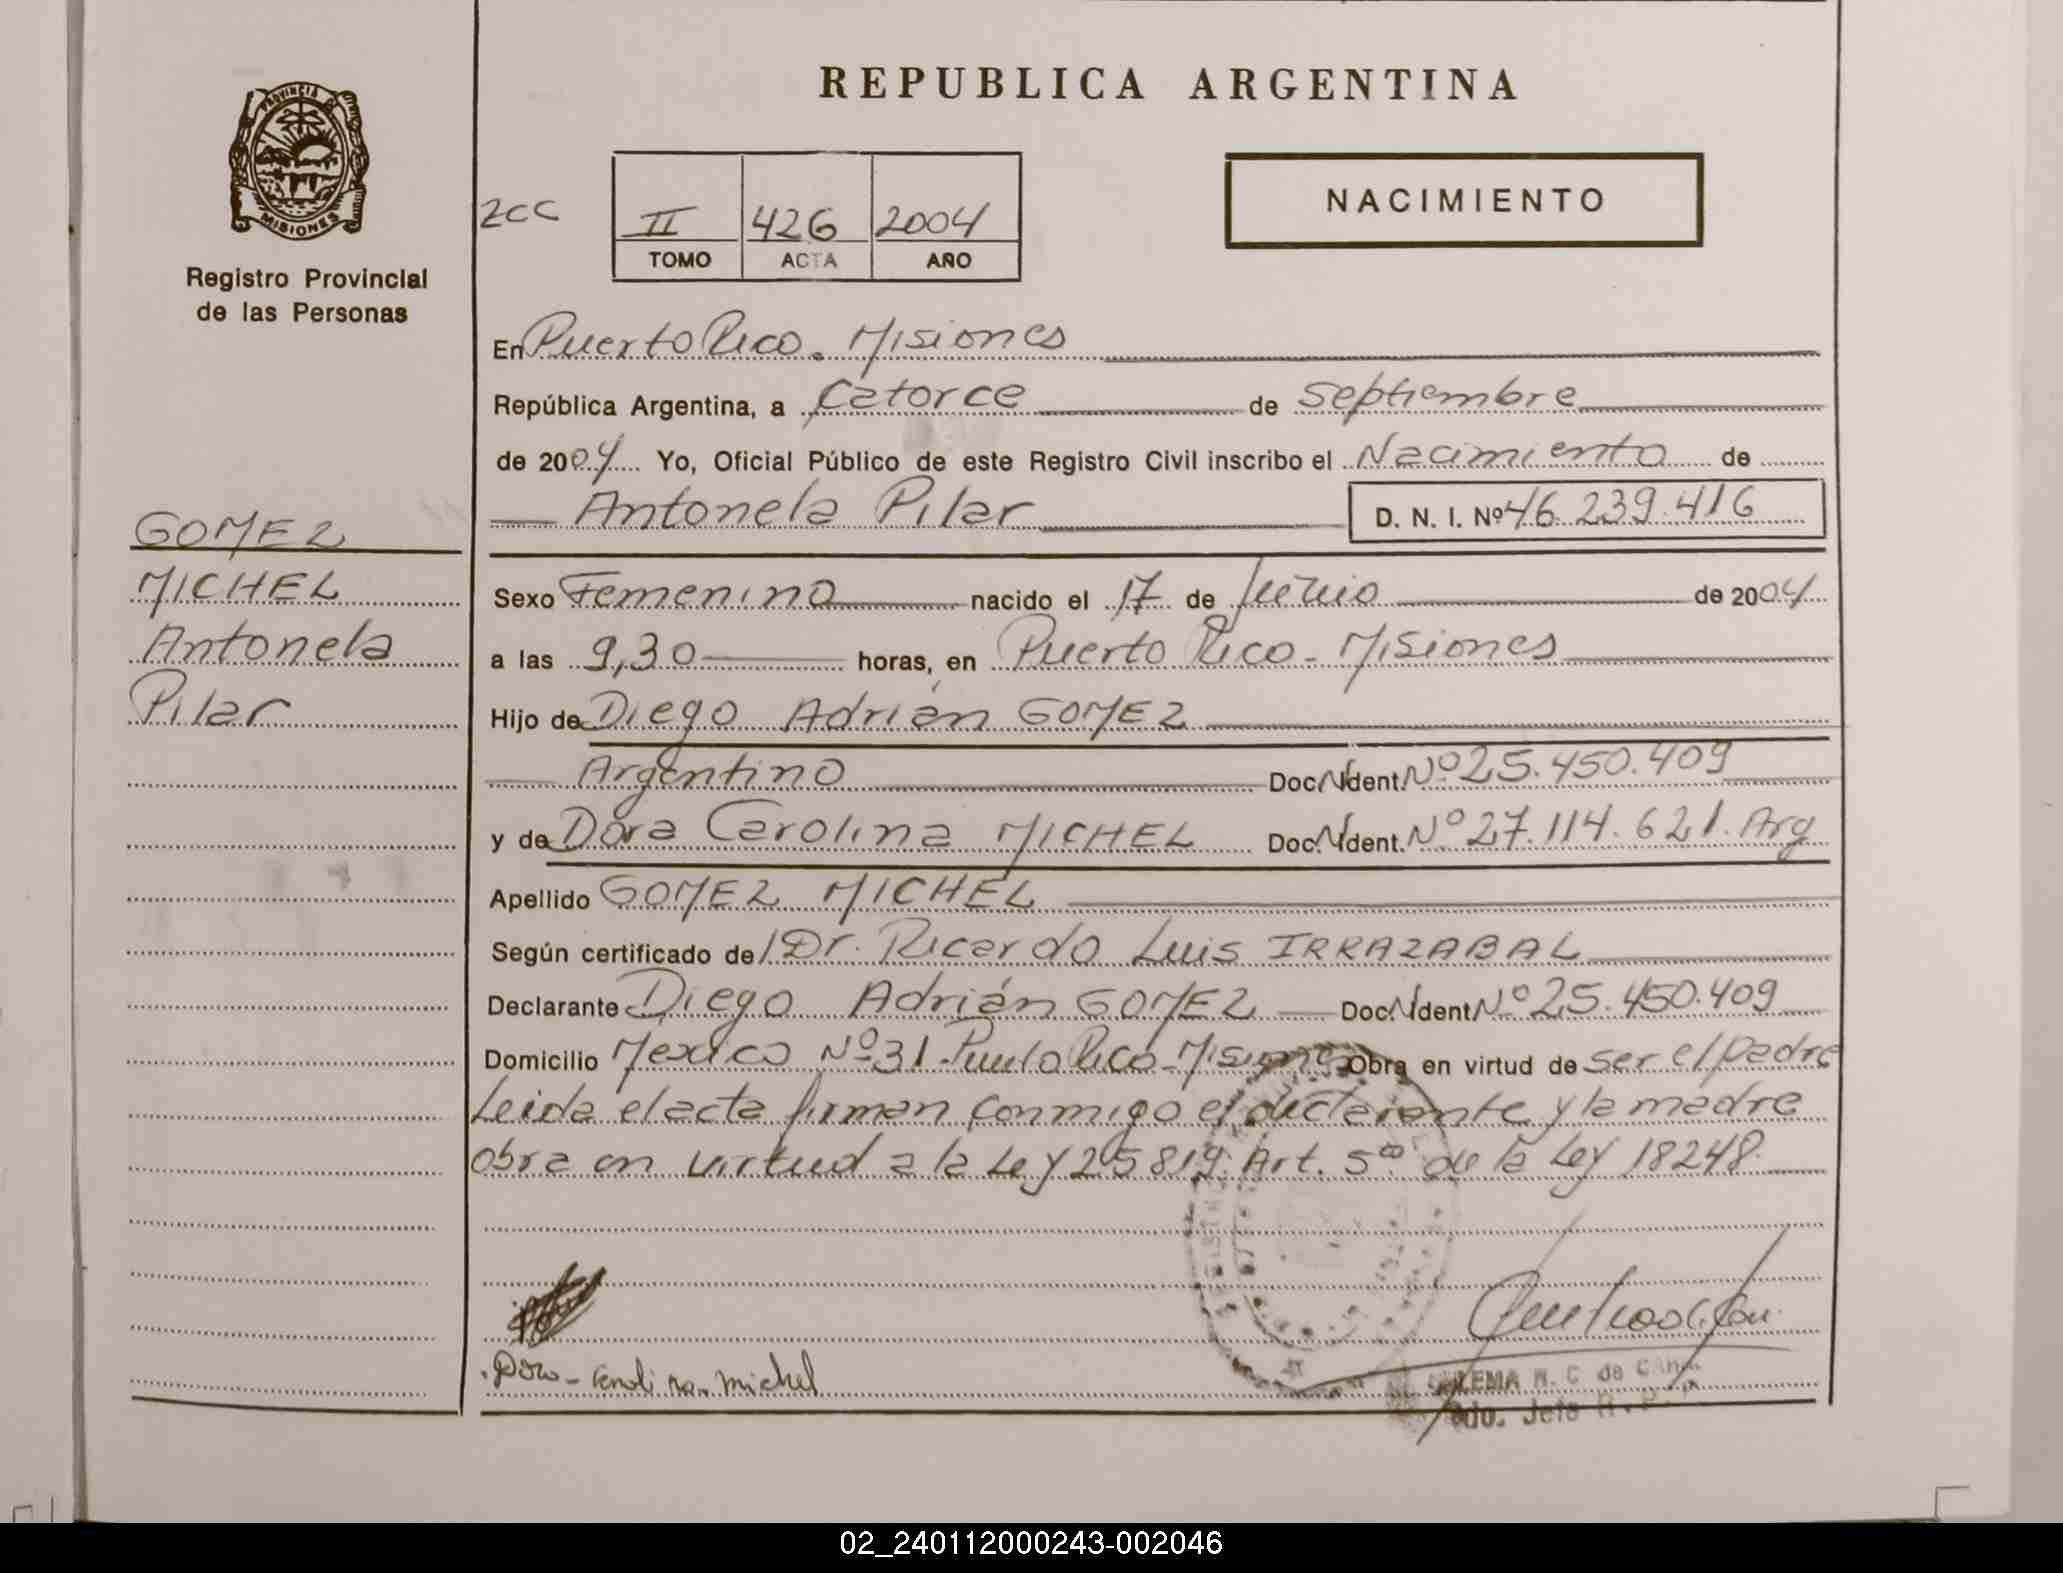 REPUBLICA ARGENTINA
PROVINCIA DE
MISIONES
Registro Provincial
de las Personas
2CC
II 426 2004
TOMO ACTA AÑO
NACIMIENTO
En Puerto Rico. Misiones
República Argentina, a Catorce de Septiembre
de 2004 Yo, Oficial Público de este Registro Civil inscribo el Nacimiento de
Antonela Pilar D. N. I. Nº 46.239.416
GOMEZ
MICHEL
Antonela
Pilar
Sexo Femenino nacido el 17 de Junio de 2004
a las 9,30 horas, en Puerto Rico - Misiones
Hijo de Diego Adrián GOMEZ
Argentino Doc. N Ident. Nº 25.450.409
y de Dora Carolina MICHEL Doc. N Ident. Nº 27.114.621. Arg
Apellido GOMEZ MICHEL
Según certificado de l Dr. Ricardo Luis IRRAZABAL
Declarante Diego Adrián GOMEZ Doc. N Ident. Nº 25.450.409
Domicilio Mexico Nº 31 - Puerto Rico - Misiones Obra en virtud de ser el padre
Leida el acta firman conmigo el declarante y la madre
obra en virtud a la Ley 25819. Art. 5º de la Ley 18248.
Dora Carolina Michel
02_240112000243-002046